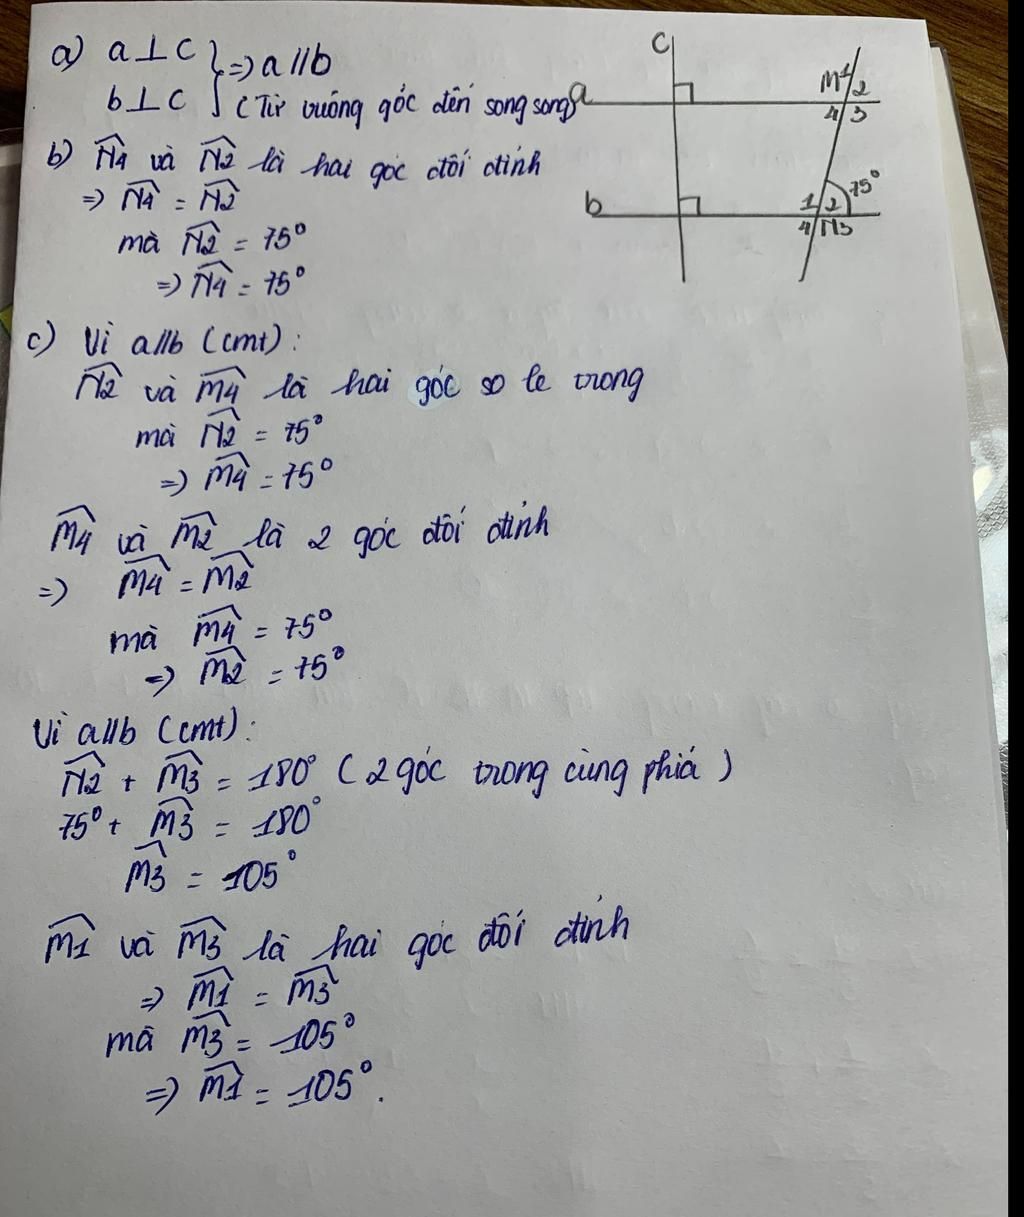 a) a⊥c } => a//b
b⊥c (Từ vuông góc đến song song)
c
a
M 1 2
4 3
b
1 2 75°
4 N3
b) N4 và N2 là hai góc đối đỉnh
=> N4 = N2
mà N2 = 75°
=> N4 = 75°
c) Vì a//b (cmt):
N2 và M4 là hai góc so le trong
mà N2 = 75°
=> M4 = 75°
M4 và M2 là 2 góc đối đỉnh
=> M4 = M2
mà M4 = 75°
=> M2 = 75°
Vì a//b (cmt):
N2 + M3 = 180° (2 góc trong cùng phía)
75° + M3 = 180°
M3 = 105°
M1 và M3 là hai góc đối đỉnh
=> M1 = M3
mà M3 = 105°
=> M1 = 105°.